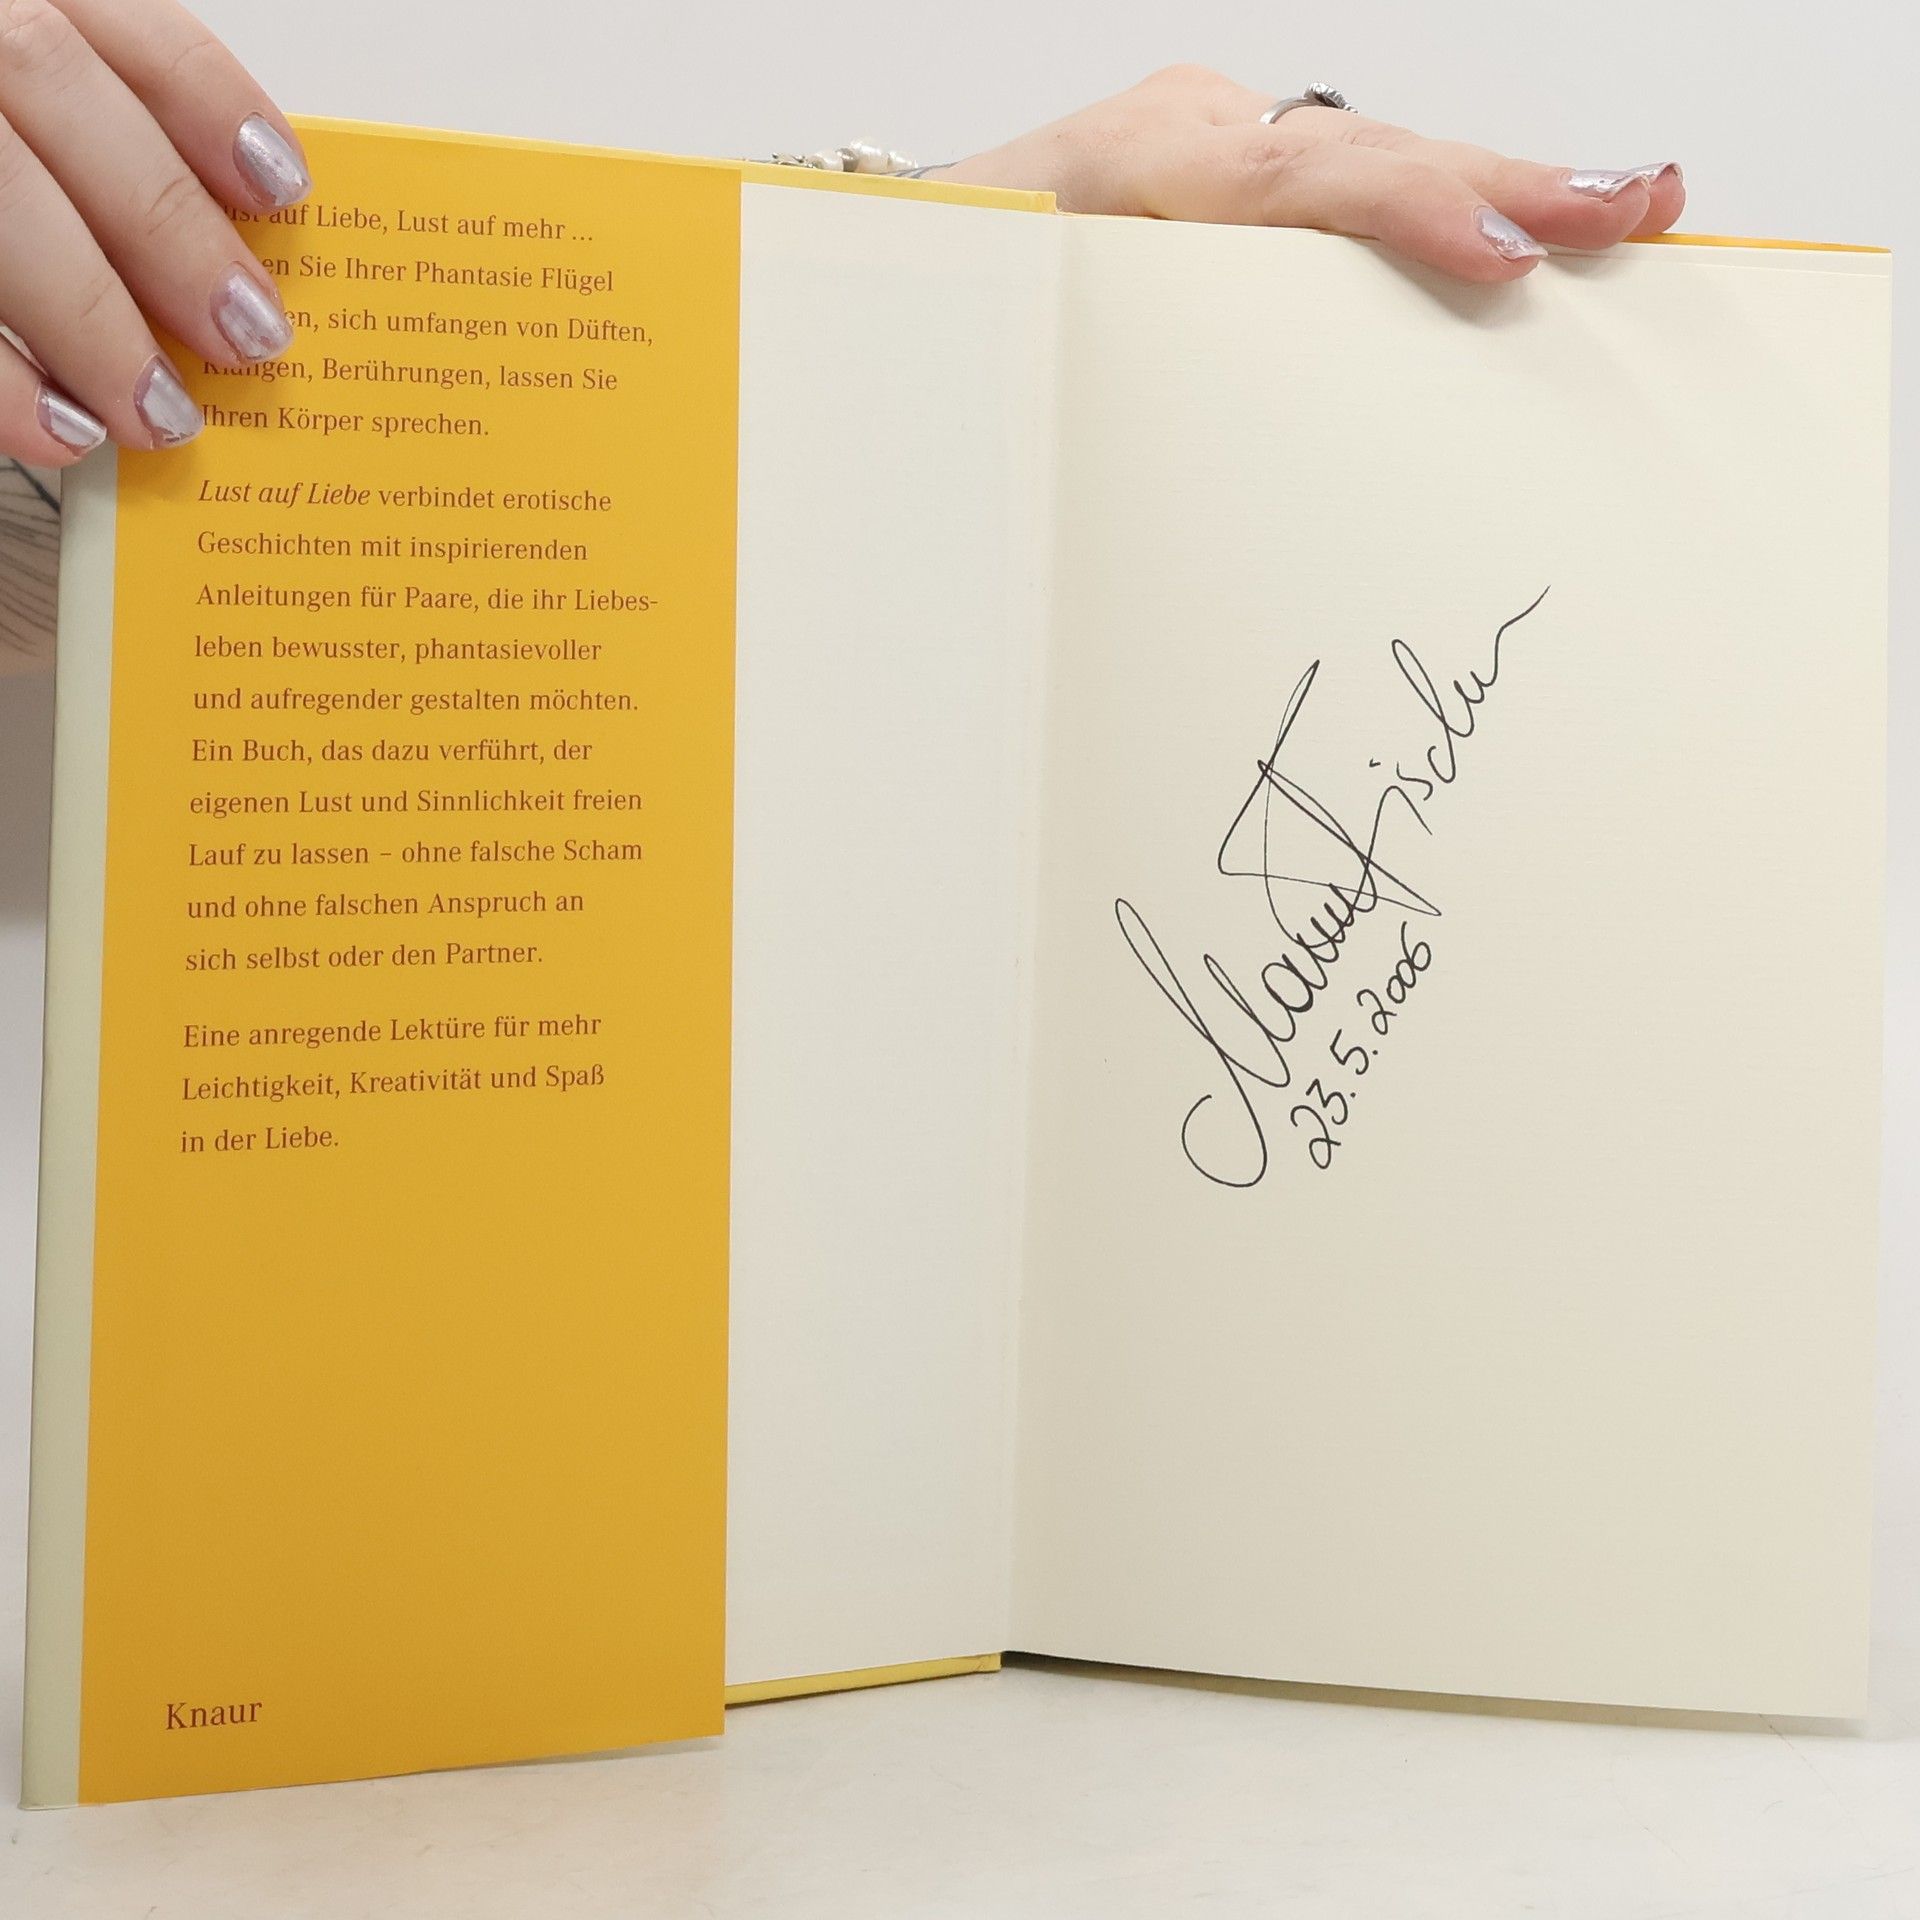 auf Liebe, Lust auf mehr ...
Sie Ihrer Phantasie Flügel
sich umfangen von Düften,
Klängen, Berührungen, lassen Sie
Ihren Körper sprechen.
Lust auf Liebe verbindet erotische
Geschichten mit inspirierenden
Anleitungen für Paare, die ihr Liebes-
leben bewusster, phantasievoller
und aufregender gestalten möchten.
Ein Buch, das dazu verführt, der
eigenen Lust und Sinnlichkeit freien
Lauf zu lassen – ohne falsche Scham
und ohne falschen Anspruch an
sich selbst oder den Partner.
Eine anregende Lektüre für mehr
Leichtigkeit, Kreativität und Spaß
in der Liebe.
Knaur
Fischer
23.5.2006